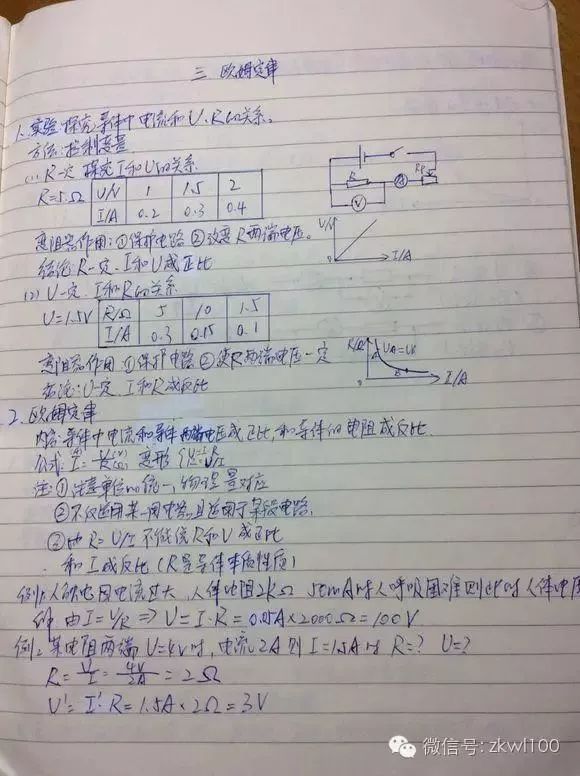 三 欧姆定律
1. 实验:探究导体中电流和U、R的关系。
方法:控制变量
(1) R一定 探究I和U的关系
R=5Ω U/V 1 1.5 2
I/A 0.2 0.3 0.4
变阻器作用:①保护电路 ②改变R两端电压。
结论:R一定,I和U成正比
R R V A
U/V
0 I/A
(2) U一定,I和R的关系
U=1.5V R/Ω 5 10 1.5
I/A 0.3 0.15 0.1
变阻器作用:①保护电路 ②使R两端电压一定
结论:U一定,I和R成反比
R/Ω
I/A
2. 欧姆定律
内容:导体中电流和导体两端电压成正比,和导体的电阻成反比.
公式: 变形
注:①注意单位的统一,物理量对应
②不仅适用某一用电器,且适用于某段电路.
②由R=U/I 不能说R和U成正比
和I成反比(R是导体本质性质)
例1:人触电因电流过大,人体电阻2kΩ 50mA时人呼吸困难则此时人体电压
解:由I=U/R ⇒ U=I·R=0.05A×2000Ω=100V
例2:某电阻两端U=4V时,电流2A则I=1.5A时 R=? U=?
R=U/I=4V/2A=2Ω
U'=I'·R=1.5A×2Ω=3V
微信号: zkwl100